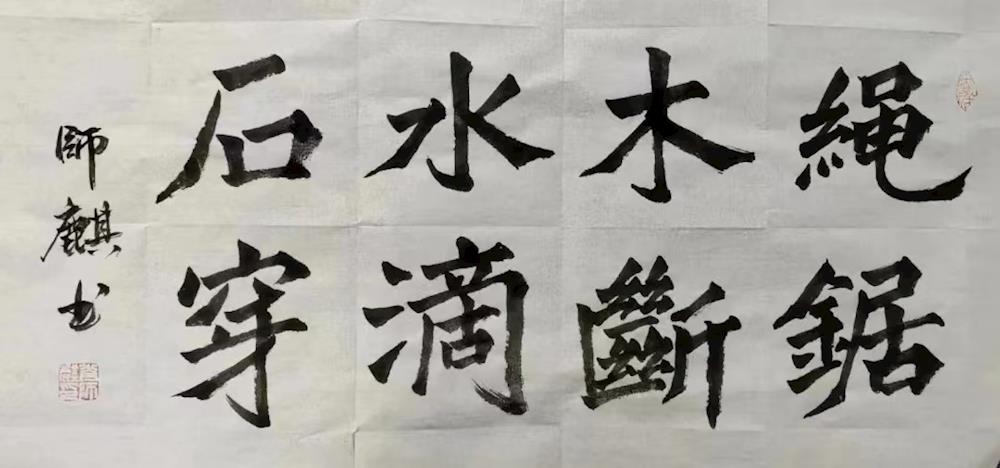 繩鋸
木斷
水滴
石穿
師麒书